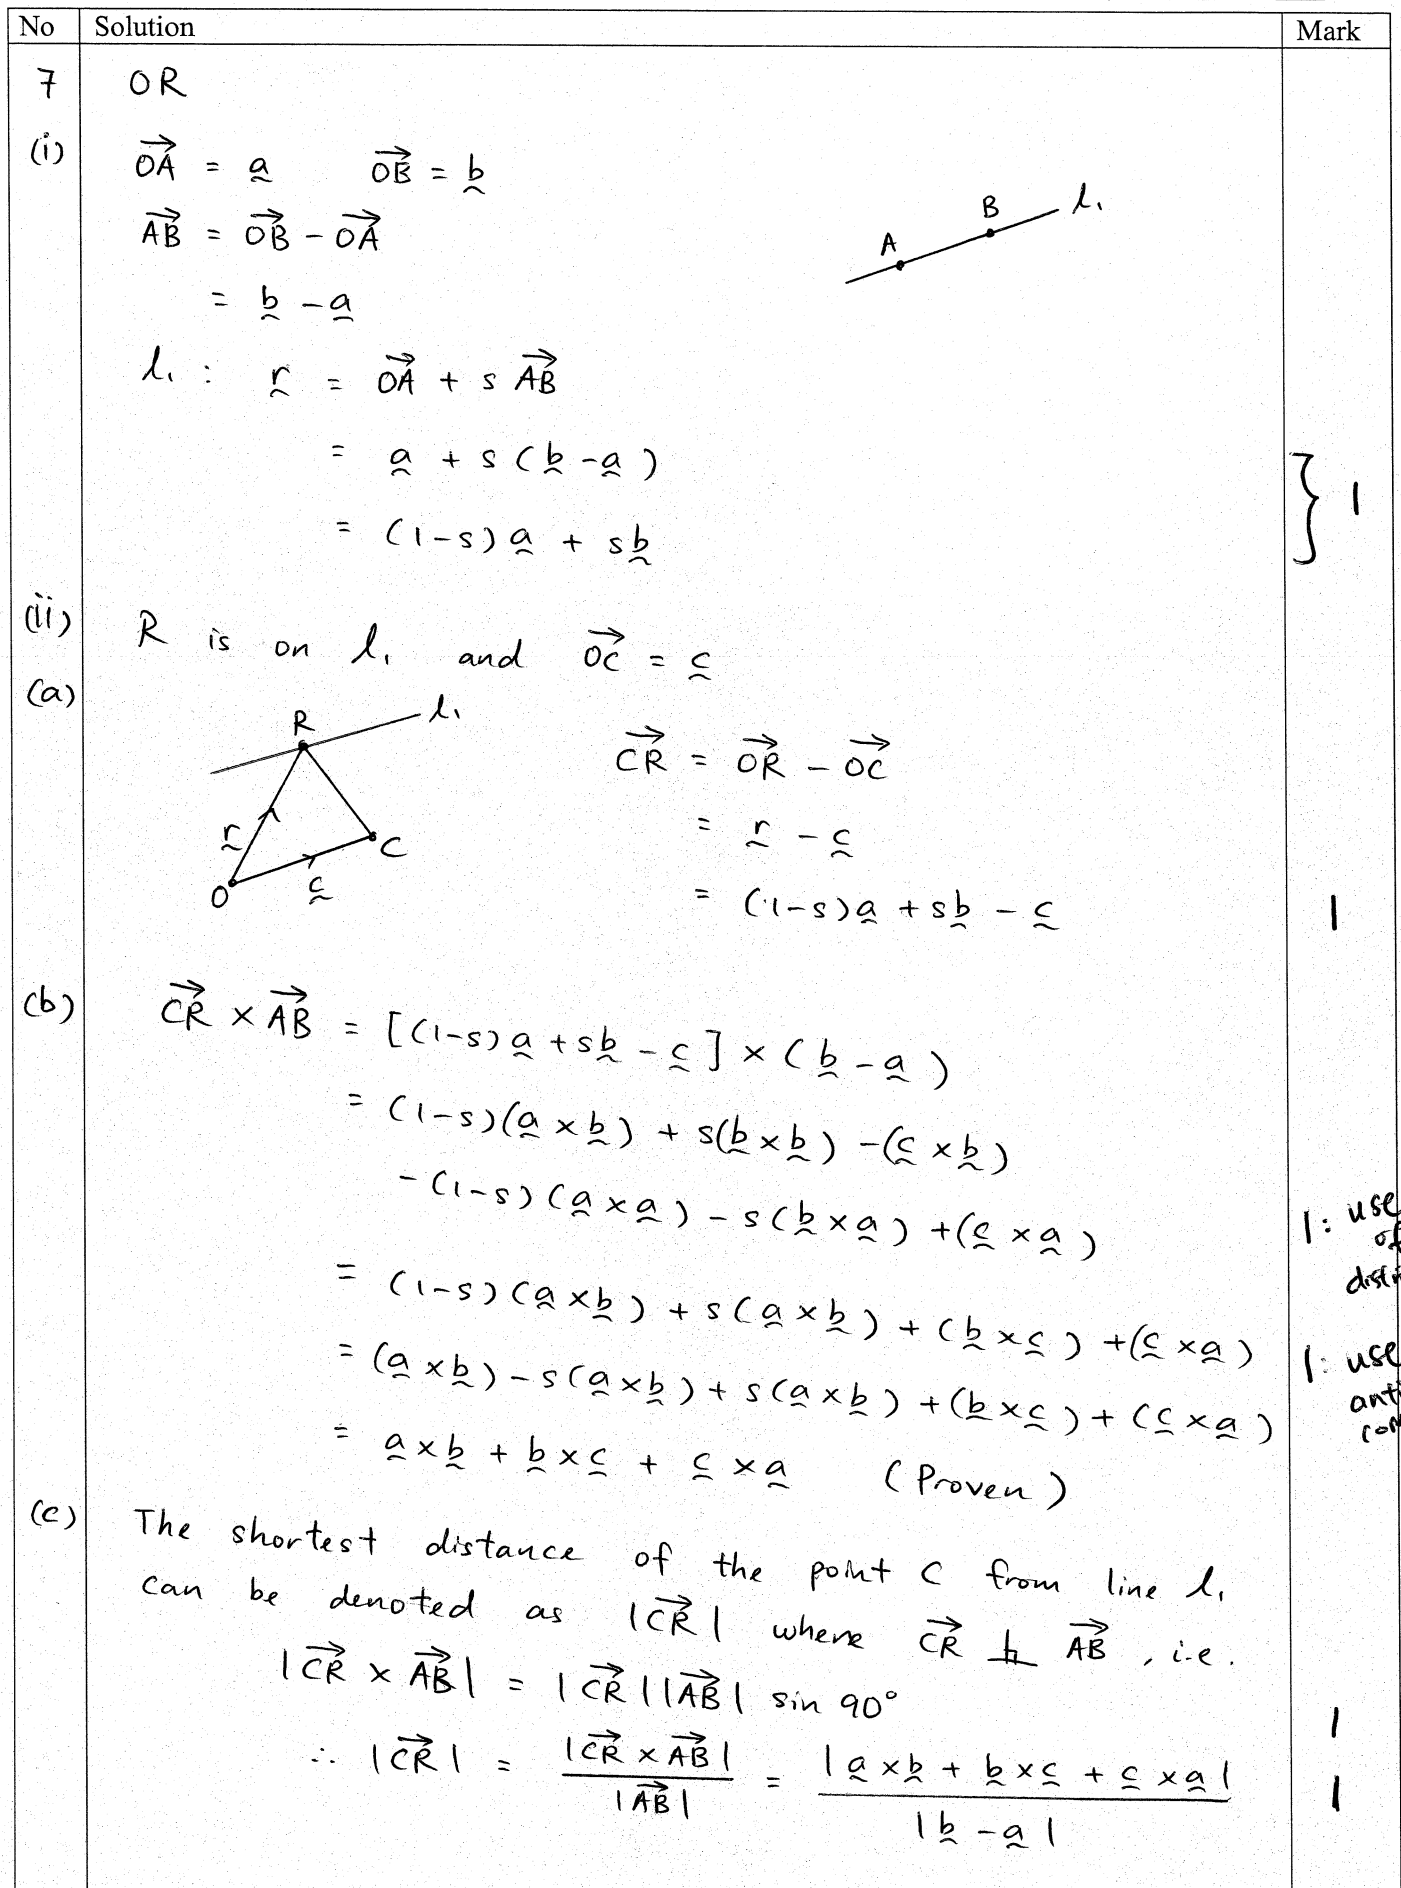 No Solution Mark
7 OR
(i) →OA = a →OB = b
→AB = →OB − →OA
= b − a
A B l₁
l₁ : r = →OA + s →AB
= a + s(b − a)
= (1−s)a + sb } 1
(ii) R is on l₁ and →OC = c
(a)
R l₁
r C
O c
→CR = →OR − →OC
= r − c
= (1−s)a + sb − c 1
(b) →CR × →AB = [(1−s)a + sb − c] × (b − a)
= (1−s)(a × b) + s(b × b) − (c × b)
− (1−s)(a × a) − s(b × a) + (c × a)
1: use
of
= (1−s)(a × b) + s(a × b) + (b × c) + (c × a)
= (a × b) − s(a × b) + s(a × b) + (b × c) + (c × a)
1: use
= a × b + b × c + c × a (Proven)
(c) The shortest distance of the point C from line l₁
can be denoted as |→CR| where →CR ⊥ →AB, i.e.
|→CR × →AB| = |→CR||→AB| sin 90° 1
∴ |→CR| = |→CR × →AB| / |→AB| = |a × b + b × c + c × a| / |b − a| 1